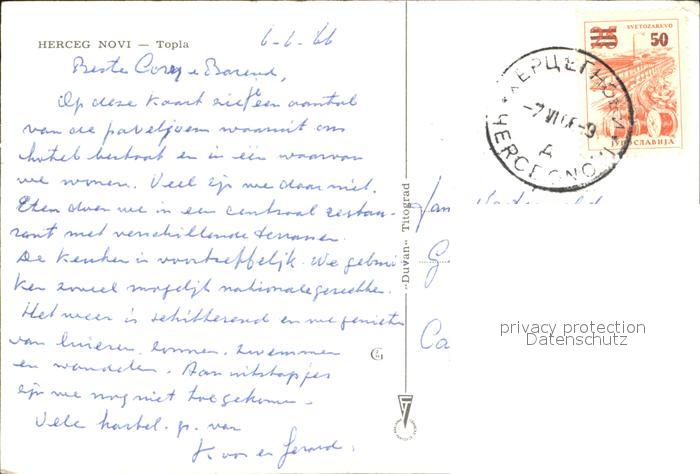 HERCEG NOVI — Topla
6-6-66
Beste Corry e Barend,
Op deze kaart zie je een aantal
van de paveljoens waaruit ons
hotel bestaat en in één waarvan
we wonen. Veel zijn we daar niet.
Eten doen we in een centraal restau-
rant met verschillende terrassen.
De keuken is voortreffelijk. We gebrui-
ken zoveel mogelijk nationale gerechten.
Het weer is schitterend en we genieten
van luieren, zonnen, zwemmen
en wandelen. Aan uitstapjes
zijn we nog niet toegekomen.
Vele hartel. gr. van
en Gerard.
„Duvan“ Titograd
SVETOZAREVO
25 50
ЈУГОСЛАВИЈА
ХЕРЦЕГНОВИ
-7 VI 66-9
A
HERCEGNOVI
Fam
G
Ca
privacy protection
Datenschutz